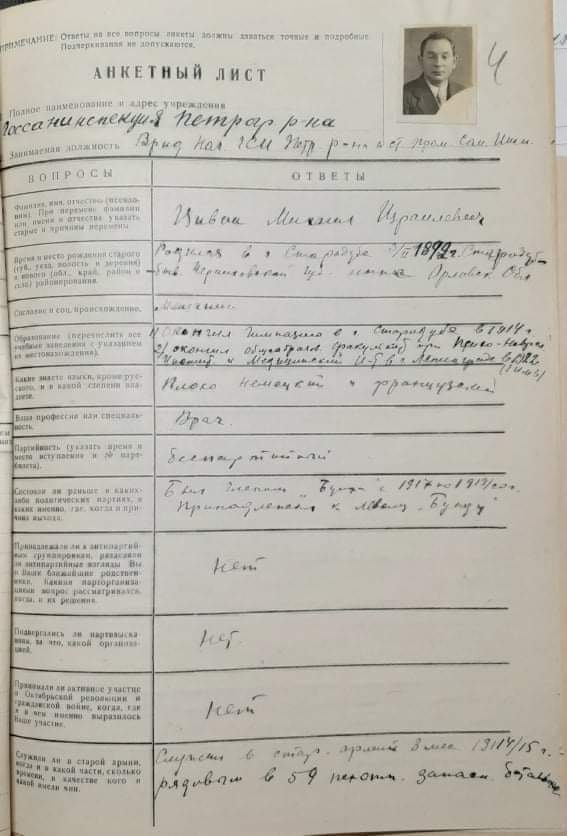 ПРИМЕЧАНИЕ: Ответы на все вопросы анкеты должны даваться точные и подробные.
Подчеркивания не допускаются.
4
АНКЕТНЫЙ ЛИСТ
Полное наименование и адрес учреждения
Госсанинспекция Петрогр р-на
Занимаемая должность Врид Нач. ГСИ Петр р-на и ст пром. сан. Инж.
ВОПРОСЫ
ОТВЕТЫ
Фамилия, имя, отчество (псевдоним). При перемене фамилии или имени и отчества указать старые и причины перемены
Михаил Израилевич
Время и место рождения старого (губ., уезд, волость и деревня) и нового (обл., край, район и село) районирования.
Родился в г. Стародубе 1892 г. Стародуб-
Черниговской губ. ныне Орловск. Обл
Сословие и соц. происхождение.
Мещанин
Образование (перечислить все учебные заведения с указанием их местонахождения).
1) Окончил Гимназию в г. Стародубе в 1914 г.
2) окончил факультет при Психо-Невр.
и Медицинский И-т в г. Ленинграде в 1922
Какие знаете языки, кроме русского, и в какой степени владеете.
Плохо немецкий и французский
Ваша профессия или специальность.
Врач.
Партийность (указать время и место вступления и № партбилета).
беспартийный
Состояли ли раньше в каких-либо политических партиях, в каких именно, где, когда и причина выхода.
Был членом „Бунда" с 1917 по
Принадлежал к левому „Бунду"
Принадлежали ли к антипартийным группировкам, разделяли ли антипартийные взгляды Вы и Ваши ближайшие родственники. Какими парторганизациями вопрос рассматривался, когда, и их решения.
Нет
Подвергались ли партвзысканиям, за что, какой организацией.
Нет.
Принимали ли активное участие в Октябрьской революции и гражданской войне, когда, где и в чем именно выразилось Ваше участие.
Нет
Служили ли в старой армии, когда и в какой части, сколько времени, в качестве кого и какой имели чин.
Служил в стар. армии 8 мес 1914/15 г.
рядовым в 59 пехотн. запасн. батальоне